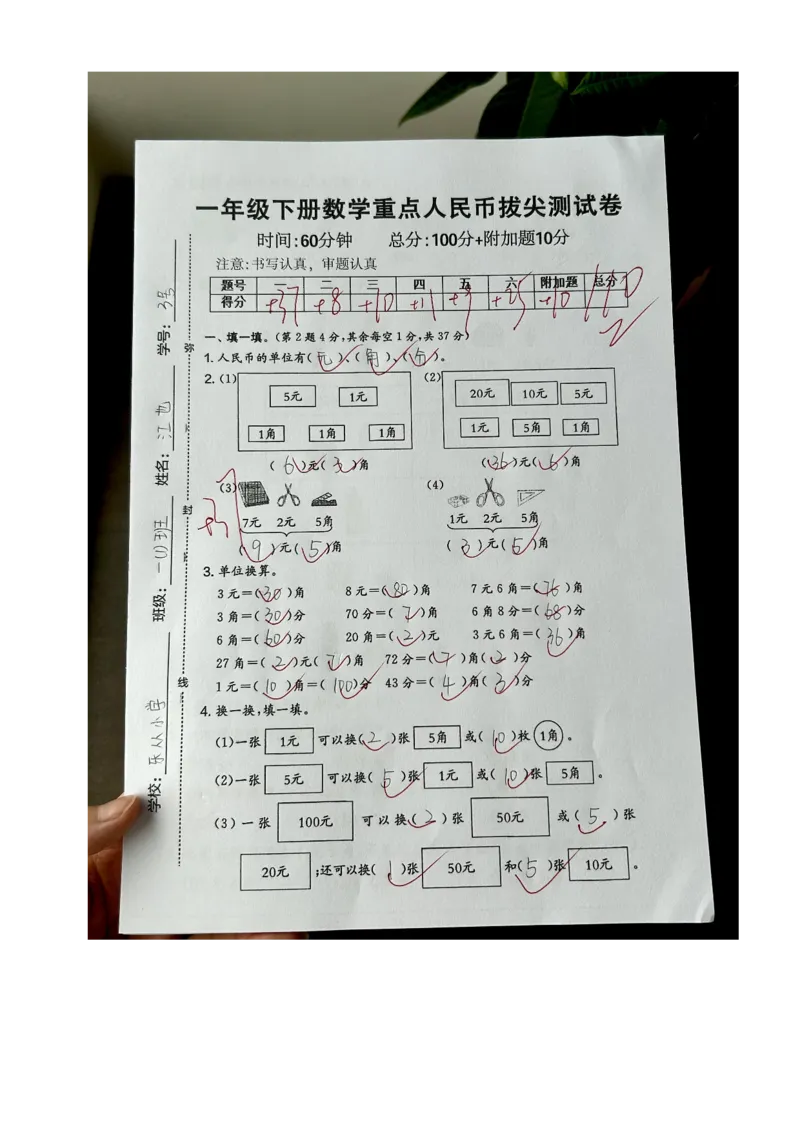 一年级下册数学重点人民币拔尖测试卷
时间:60分钟 总分:100分+附加题10分
注意:书写认真，审题认真
题号 一 二 三 四 五 六 附加题 总分
得分 +37 +8 +10 +11 +9 +25 +10 110
一、填一填。(第2题4分,其余每空1分,共37分)
1.人民币的单位有(元)、(角)、(分)。
2.(1) (2)
5元 1元 20元 10元 5元
1角 1角 1角 1元 5角 1角
(6)元(3)角 (36)元(6)角
(3) (4)
7元 2元 5角 1元 2元 5角
(9)元(5)角 (3)元(5)角
+37
3.单位换算。
3元=(30)角 8元=(80)角 7元6角=(76)角
3角=(30)分 70分=(7)角 6角8分=(68)分
6角=(60)分 20角=(2)元 3元6角=(36)角
27角=(2)元(7)角 72分=(7)角(2)分
1元=(10)角=(100)分 43分=(4)角(3)分
4.换一换,填一填。
(1)一张 1元 可以换(2)张 5角 或(10)枚 1角 。
(2)一张 5元 可以换(5)张 1元 或(10)张 5角 。
(3)一张 100元 可以换(2)张 50元 或(5)张
20元 ;还可以换(1)张 50元 和(5)张 10元 。
学校: 乐从小学 班级: 一(1)班 姓名: 江也 学号: 3号
弥 封 线